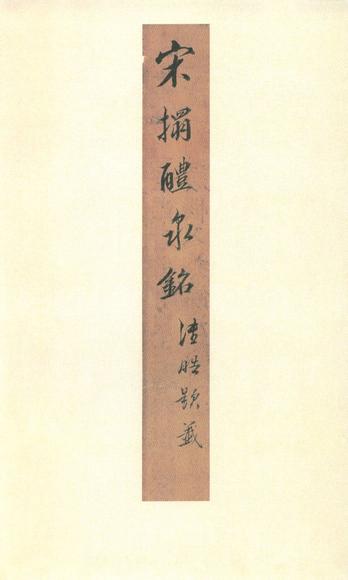 宋搨醴泉銘
題籤